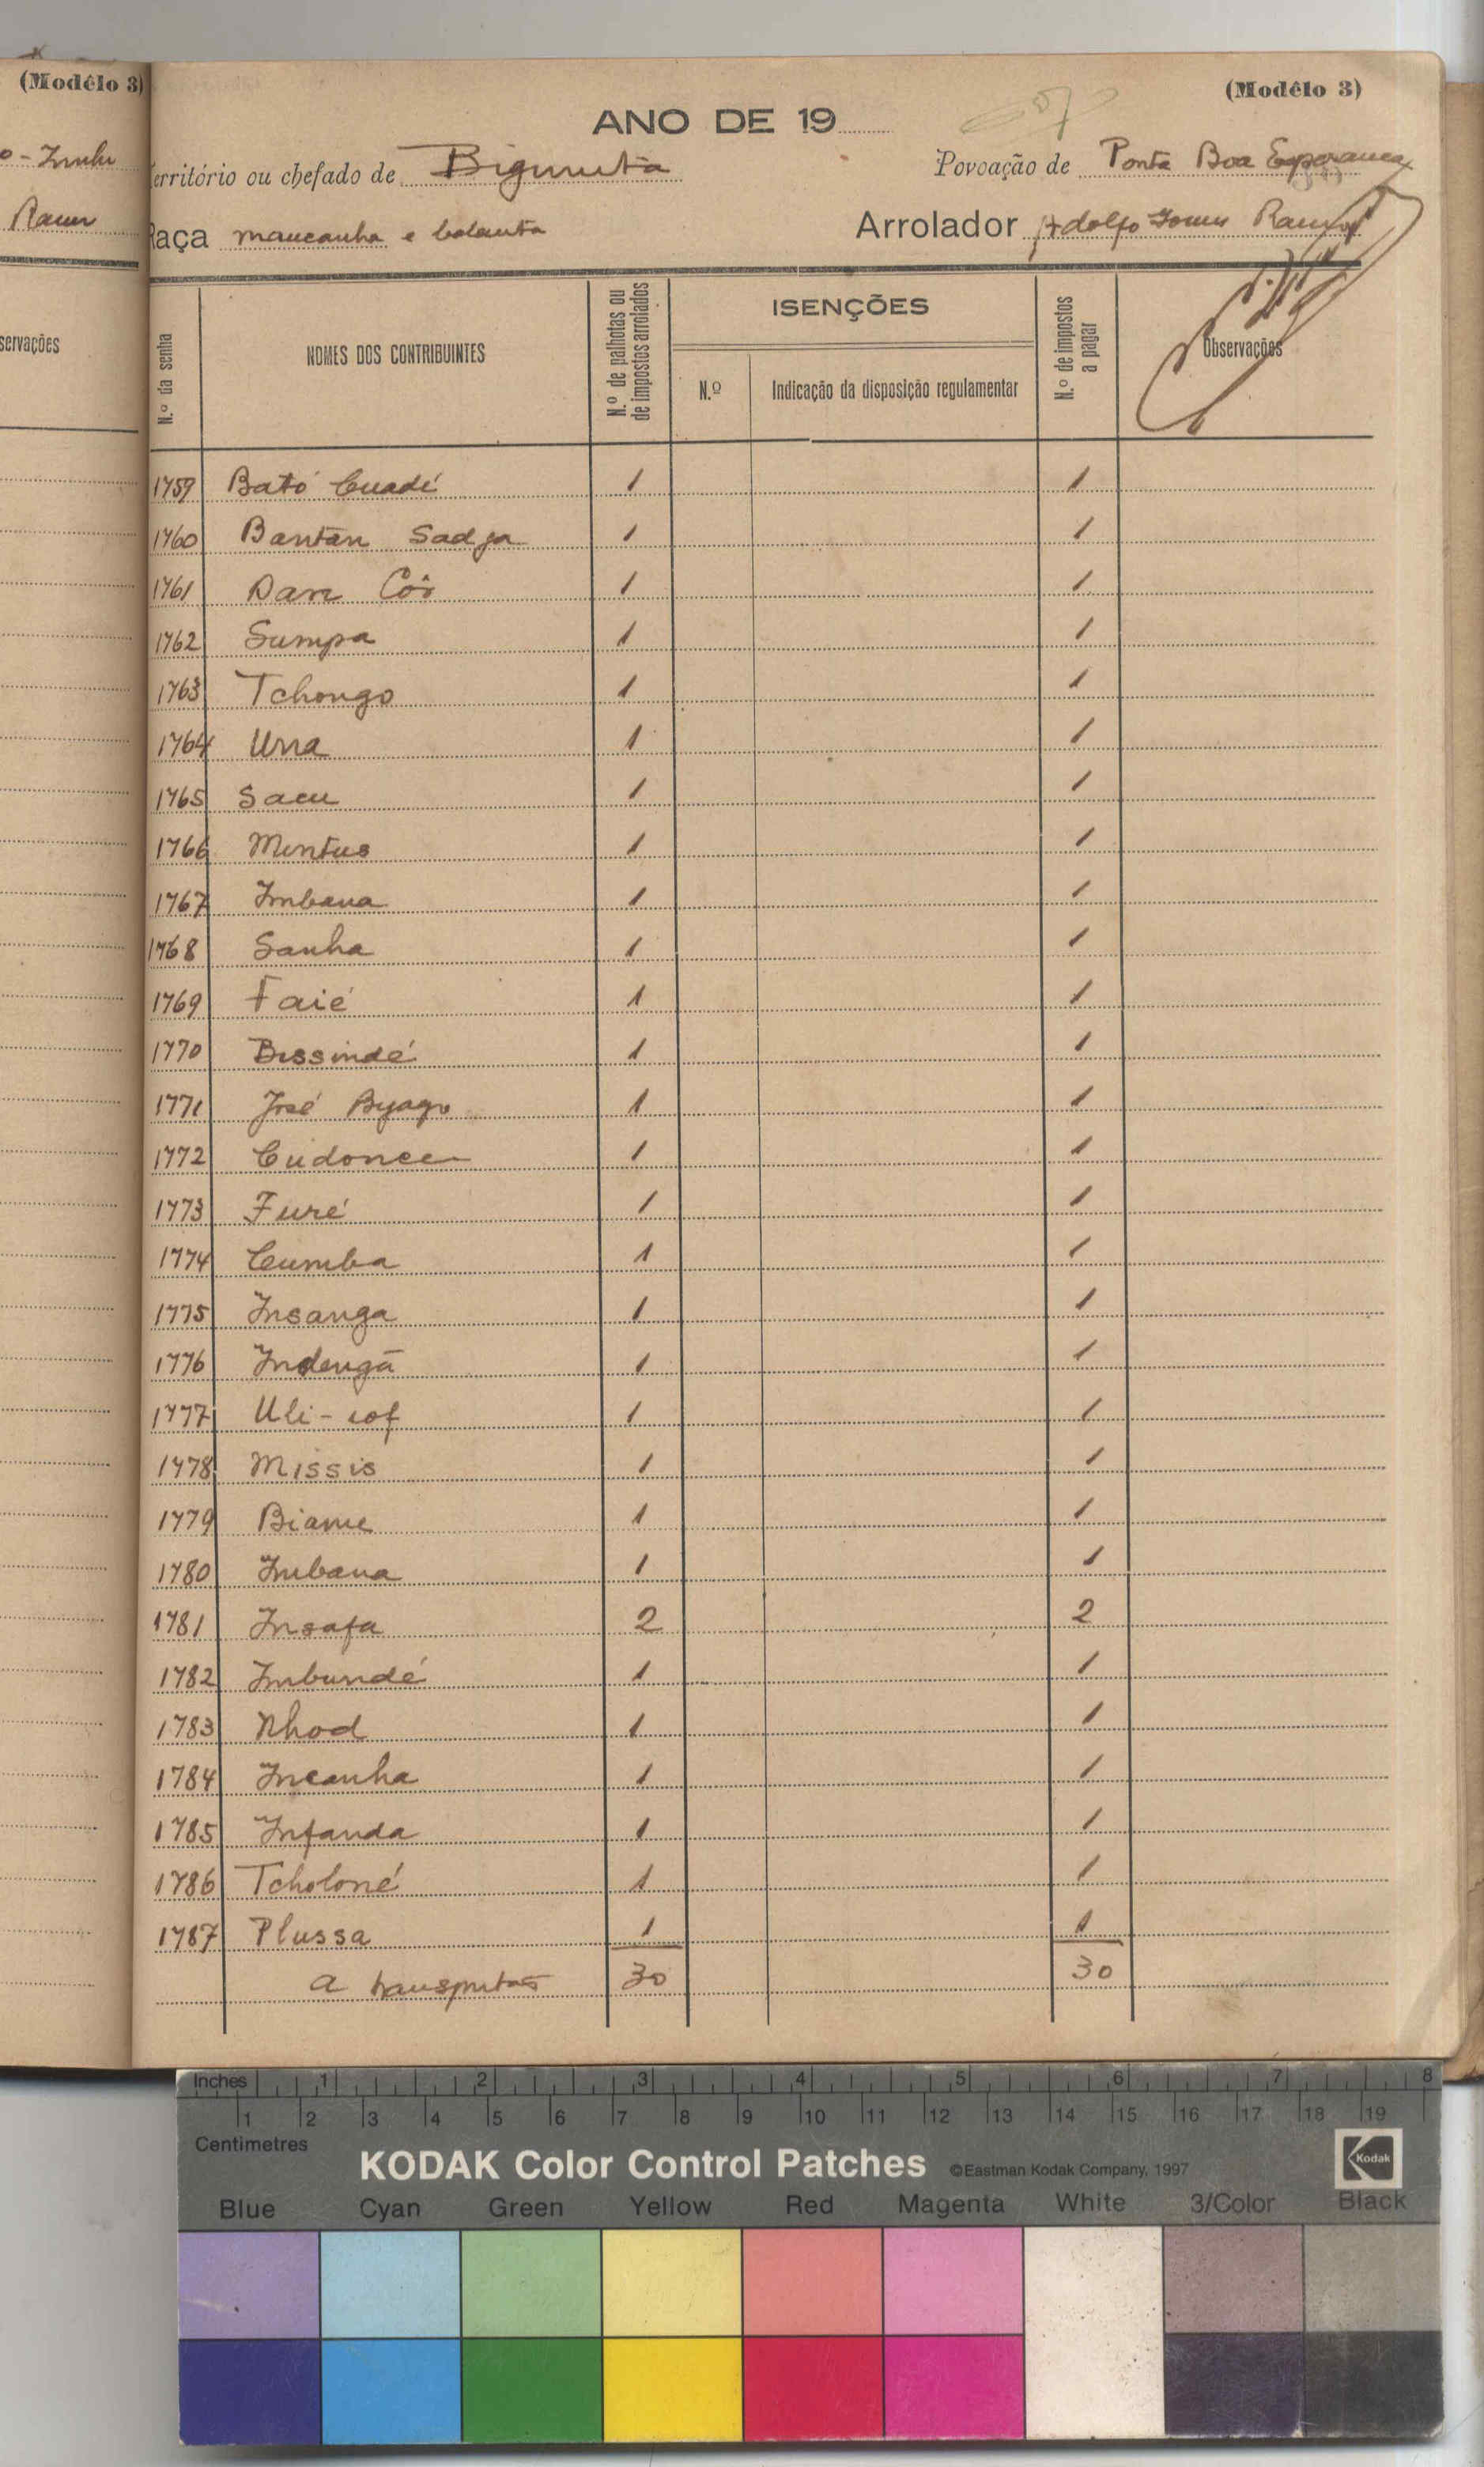 (Modêlo 3)
(Modêlo 3)
ANO DE 19
Território ou chefado de Bigimita
Povoação de Ponta Boa Esperança
Raça mancanha e balanta
Arrolador Adolfo Gomes Ramos
N.º da senha
NOMES DOS CONTRIBUINTES
N.º de palhotas ou de impostos arrolados
ISENÇÕES
N.º
Indicação da disposição regulamentar
N.º de impostos a pagar
Observações
servações
1759 Bató Cuadé 1 1
1760 Bantan Sadja 1 1
1761 Dam Cói 1 1
1762 Sumpa 1 1
1763 Tchongo 1 1
1764 Una 1 1
1765 Sacu 1 1
1766 Mintus 1 1
1767 Imbana 1 1
1768 Sanha 1 1
1769 Faié 1 1
1770 Bissindé 1 1
1771 José Byago 1 1
1772 Cudonce 1 1
1773 Furé 1 1
1774 Cumba 1 1
1775 Insanga 1 1
1776 Indengã 1 1
1777 Uli-iof 1 1
1778 Missis 1 1
1779 Biame 1 1
1780 Imbana 1 1
1781 Insafa 2 2
1782 Imbundé 1 1
1783 Nhod 1 1
1784 Incanha 1 1
1785 Infanda 1 1
1786 Tcholoné 1 1
1787 Plussa 1 1
a transportar 30 30
Inches 1 2 3 4 5 6 7 8
1 2 3 4 5 6 7 8 9 10 11 12 13 14 15 16 17 18 19
Centimetres
KODAK Color Control Patches ©Eastman Kodak Company, 1997 Kodak
Blue Cyan Green Yellow Red Magenta White 3/Color Black